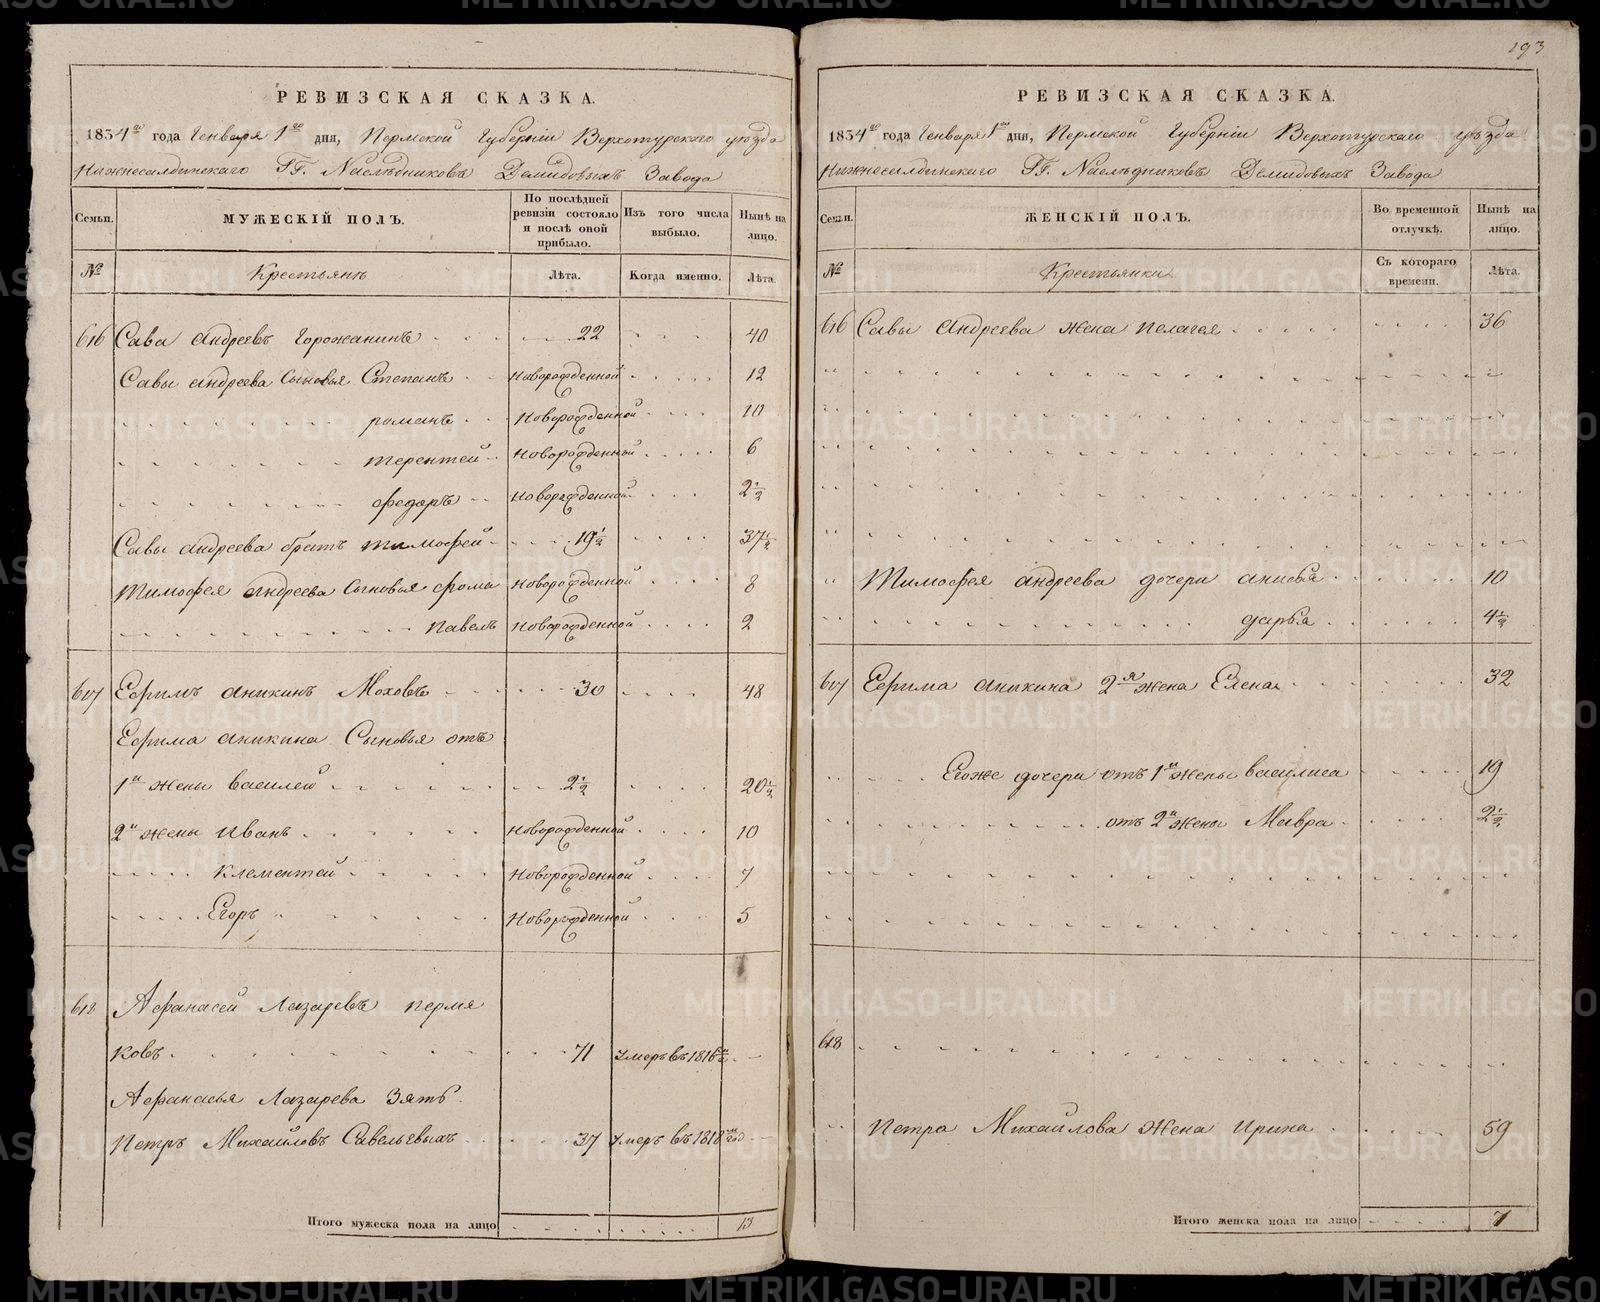 РЕВИЗСКАЯ СКАЗКА.
1834го года Генваря 1го дня, Пермской Губернии Верхотурскаго уѣзда
Нижнесалдинскаго ГГ. Наслѣдниковъ Демидовыхъ Завода
Семьи. МУЖЕСКІЙ ПОЛЪ. По послѣдней ревизіи состояло и послѣ оной прибыло. Изъ того числа выбыло. Нынѣ на лицо.
№ Крестьянъ Лѣта. Когда именно. Лѣта.
616 Сава Андреевъ Горожанинъ 22 40
Савы Андреева Сыновья Степанъ Новорожденной 12
романъ Новорожденной 10
терентей Новорожденной 6
федоръ Новорожденной 2 1/2
Савы Андреева братъ тимофей 19 1/2 37 1/2
Тимофея Андреева Сыновья фома Новорожденной 8
павелъ Новорожденной 2
617 Ефимъ Аникинъ Моховъ 30 48
Ефима Аникина Сыновья отъ
1й жены василей 2 1/2 20 1/2
2й жены Иванъ Новорожденной 10
Клементей Новорожденной 7
Егоръ Новорожденной 5
618 Афанасей Лазаревъ пермя
ковъ 71 умеръ въ 1816м
Афанасья Лазарева Зять
Петръ Михайловъ Савельевыхъ 37 умеръ въ 1818м год
Итого мужеска пола на лицо 13
193
РЕВИЗСКАЯ СКАЗКА.
1834го года Генваря 1го дня, Пермской Губерніи Верхотурскаго уѣзда
Нижнесалдинскаго ГГ. Наслѣдниковъ Демидовыхъ Завода
Семьи. ЖЕНСКІЙ ПОЛЪ. Во временной отлучкѣ. Нынѣ на лицо.
№ Крестьянки Съ котораго времени. Лѣта.
616 Савы Андреева жена пелагея 36
Тимофея андреева дочери анисья 10
дарья 4 1/2
617 Ефима Аникина 2я жена Елена 32
Егоже дочери отъ 1й жены василиса 19
отъ 2й жены Мавра 2 1/2
618
Петра Михайлова жена Ирина 59
Итого женска пола на лицо 7
METRIKI.GASO-URAL.RU